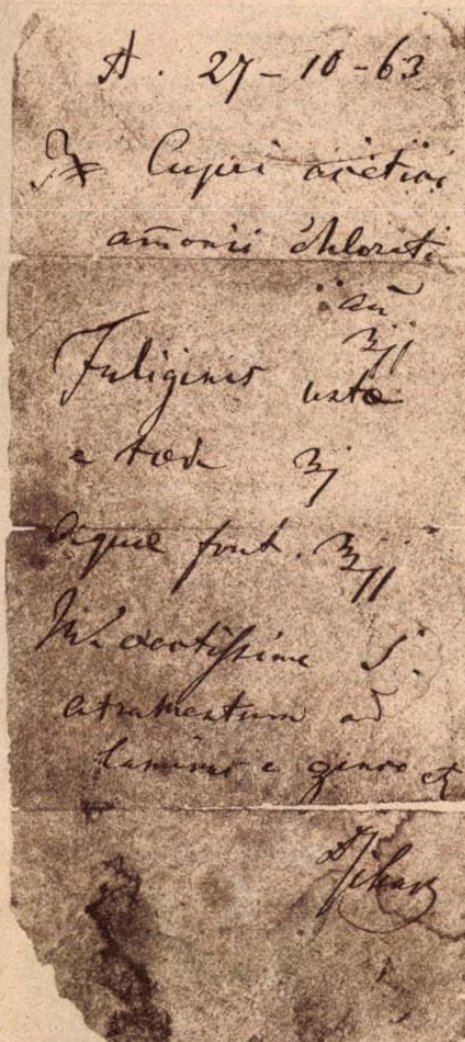 A. 27-10-63
℞ Cupri acetici
am̄onii chlorati
aā
ʒjj
Fuliginis ustæ
e tæda ʒj
Aquæ font. ℥jj
M. exactissime S.
atramentum ad
e et